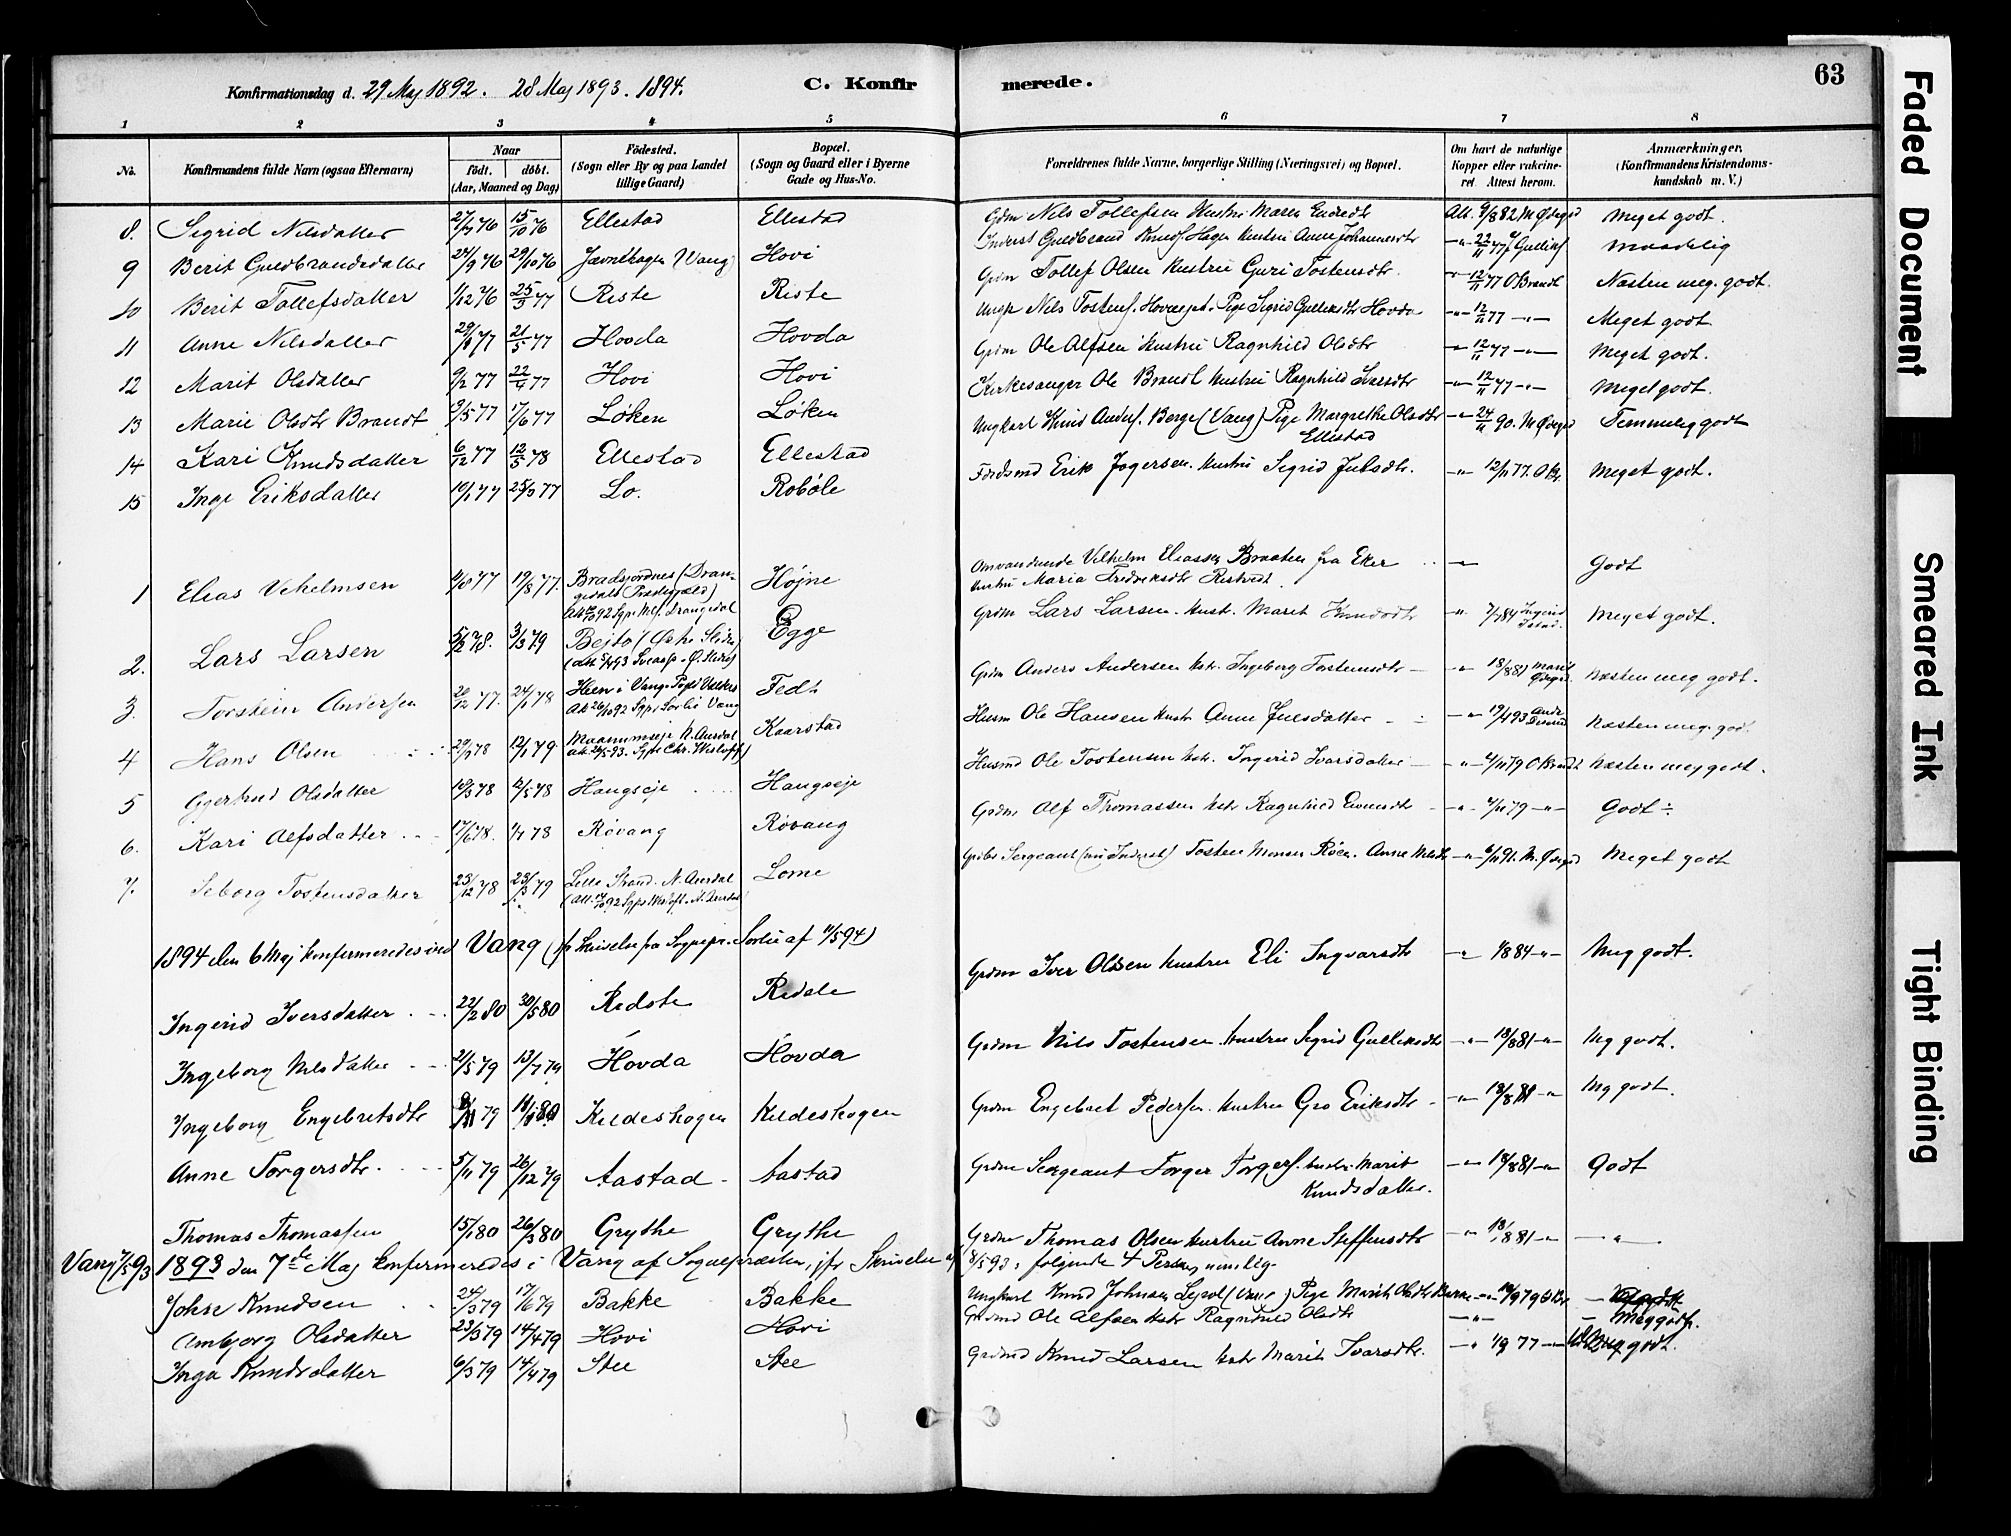 63
Konfirmationsdag d. 29 Maj 1892. 28 Maj 1893. 1894.
C. Konfirmerede.
1 2 3 4 5 6 7 8
No.
Konfirmandens fulde Navn (ogsaa Efternavn)
Naar født. døbt. (Aar, Maaned og Dag)
Fødested. (Sogn eller By og paa Landet tillige Gaard)
Bopæl. (Sogn og Gaard eller i Byerne Gade og Hus-No.
Forældrenes fulde Navne, borgerlige Stilling (Næringsvei) og Bopæl.
Om havt de naturlige Kopper eller vakcineret. Attest herom.
Anmærkninger. (Konfirmandens Kristendomskundskab m. V.)
8. Sigrid Nilsdatter 27/7 76 15/10 76 Ellestad Ellestad Grdm Nils Tollefsen Hustru Maren Endredtr Att. 9/8 82 M Ødegrd Meget godt.
9 Berit Guldbrandsdatter 24/9 76 29/10 76 Jævnthagen (Vang) Hovi Inderst Guldbrand Knuds. Hagen Hustru Anne Johannesdtr -"- 22/11 77 Gulliks maadelig
10 Berit Tollefsdatter 1/12 76 25/3 77 Riste Riste Grdm Tollef Olsen Hustru Guri Tostensdtr. " 12/11 77 O Brandt Næsten meg. godt.
11 Anne Nilsdatter 21/5 77 Hovda Hovda Ungk Nils Tostens. Pige Sigrid Gulleiksdtr Hovda -"- 12/11 77 -"- Meget godt
12 Marit Olsdatter 9/2 77 22/4 77 Hovi Hovi Grdm Ole Alfsen Hustru Ragnhild Olsdtr -"- 12/11 77 -"- Meget godt.
13 Marie Olsdtr Brandt 3/5 77 17/6 77 Løken Løken Kirkesanger Ole Brandt Hustru Ragnhild Ivarsdtr -"- 12/11 77 -"- Meget godt.
14 Kari Knudsdatter 6/12 77 12/5 78 Ellestad Ellestad Ungkarl Knud Anders. Berge (Vang) Pige Margrethe Olsdtr Ellestad -"- 24/11 90. M Ødegrd Temmelig godt
15 Inge Eriksdatter 10/1 77 25/3 77 Lo. Robøle Erik Jogersen. Hustru Sigrid Julsdtr. -"- 12/11 77. O Br. Meget godt.
1 Elias Vilhelmsen 19/8 77. Bradsfordnes (Drangedals Præstegæld) Att 92 Sgpr. Drangedal Højne Omvandrende Vilhelm Eliassen Braaten fra Eker Hustru Maria Fredriksdtr -"- Godt
2. Lars Larsen 5/12 78. 3/2 79 Bejto (Østre Slidre) Egge Grdm Lars Larsen. Hust. Marit Knudsdtr " 7/7 84 Ingerid Meget godt.
3. Torstein Andersen 21/12 77. 24/1 78 Heen i Vang Att 26/10 92 Sgpr Sørlie Vang Grdm Anders Andersen Hstr. Ingeborg Tostensdtr -"- 18/8 81 Marit Ødegrd næsten meg godt.
4 Hans Olsen 29/9 78 12/1 79 N. Aurdal Att 93. Sgpr Chr. Wisløff) Kaarstad Husm Ole Hansen Hustr Anne Julsdatter -"- 19/4 93 næsten meg. godt
5 Gjertrud Olsdatter 10/3 78 12/5 78 Haugseje Haugseje Husmd Ole Tostensen Hstr. Ingerid Ivarsdatter -"- 4/11 79 O Brandt næsten meg godt.
6. Kari Alfsdatter 17/6 78. 1/7 78 Røvang Røvang Grdm Alf Thomassen Hstr Ragnhild Evensdtr -"- 4/11 79 -"- Godt ÷
7. Seborg Tostensdatter 23/12 78 23/3 79 Lille Strand. N. Aurdal Lome Sergeant (nu Inderst) Tosten Monsen Røen. Anne Nilsdtr -"- 6/11 91. M. Ødegrd Meget godt
1894 den 6 Maj konfirmeredes ved Vang (jfr Skrivelse fra Sognepr. Sørlie af 11/5 94)
Ingerid Iversdatter 22/2 80 30/5 80 Redste Redste Grdm Iver Olsen Hustru Eli Ingvarsdtr -"- 1/8 84 -"- Meg godt.
Ingeborg Nilsdatter 2/5 79 13/7 79 Hovda Hovda Grdm Nils Tostensen Hustru Sigrid Gulleiksdtr -"- 18/8 81 -"- Mg godt.
Ingeborg Engebretsdtr 79 80 Kildeskogen Kildeskogen Grdm Engebret Pedersen. Hustru Gro Eriksdtr -"- 18/8 81 -"- Mg godt.
Anne Torgersdtr. 5/11 79 26/12 79 Aastad Aastad Grdm Sergeant Torger Torgers. Hustru Marit Knudsdatter. -"- 18/8 81 -"- Godt
Thomas Thomassen 15/1 80 26/3 80 Grythe Grythe Grdm Thomas Olsen Hustru Anne Steffensdtr -"- 18/8 81 -"- -"-
Vang 7/5 93 1893 den 7de Maj konfirmeredes i Vang af Sognepræsten, jfr Skrivelse af 8/5 93, følgende 4 Personer nemlig
Johre Knudsen 24/3 79 17/6 79 Bakke Bakke Ungkarl Knud Johnsen Pige Marit Olsdtr -"- 79 O Br
Ambjorg Olsdatter 23/3 79 14/4 79 Hovi Hovi Grdmd Ole Alfsen Hstr Ragnhild Olsdtr -"- Meg godt.
Inga Knudsdatter 6/3 79 14/4 79 Stee Stee Grdmd Knud Larsen Hstr Marit Ivarsdtr. -"- 1/9 77 -"- Meg godt.
Faded Document
Smeared Ink
Tight Binding